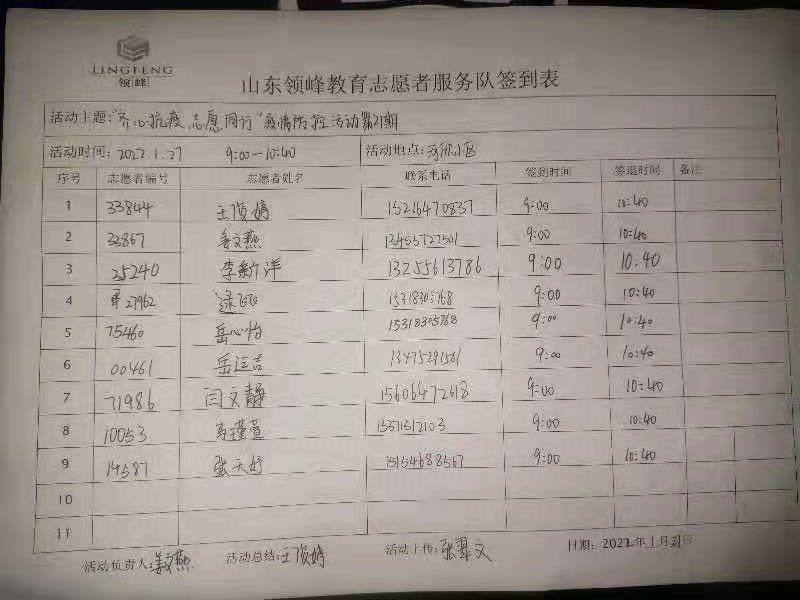 LINGFENG
领峰
山东领峰教育志愿者服务队签到表
活动主题:"齐心抗疫 志愿同行"疫情防控活动第21期
活动时间: 2022.1.27 9:00—10:40 活动地点: 小区
序号 志愿者编号 志愿者姓名 联系电话 签到时间 签退时间 备注
1 33844 王俊婷 15216470837 9:00 10:40
2 33867 姜文燕 13455727501 9:00 10:40
3 25240 李新洋 13255613786 9:00 10:40
4 27962 9:00 10:40
5 75460 岳心怡 15318305768 9:00 10:40
6 00461 岳 吉 13475291561 9:00 10:40
7 71986 闫文静 15606472618 9:00 10:40
8 10053 马瑾萱 13571312103 9:00 10:40
9 14587 张天妤 15154688567 9:00 10:40
10
11
活动负责人: 姜文燕 活动总结: 王俊婷 活动上传: 张翠文 日期: 2022年1月27日